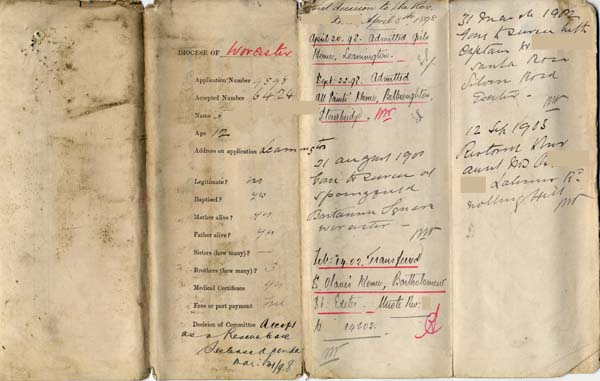 DIOCESE OF Worcester
Application Number 9594
Accepted Number 6424
Name
Age 12
Address on application Leamington
Legitimate? no
Baptised? yes
Mother alive? yes
Father alive? yes
Sisters (how many)? —
Brothers (how many)? 3
Medical Certificate yes
Free or part payment free
Decision of Committee Accept
as a Rescue case
March 21/98
decision to the Rev.
April 5th 1898
April 20. 98. Admitted
Home, Leamington.
Sept. 22. 98. Admitted
All Saints' Home, Bellbroughton,
Stourbridge.
21 August 1901
Gone to service at
Britannia Square
Worcester
Feb: 14.02. Transferred
St Olave's Home, Bartholomew
St. Exeter. Wrote Rev:
14202.
31 March 1902
Gone to service with
Captain
Santa Rosa
Exeter.
12 Sep 1905
aunt Mrs
Latimer Rd
Notting Hill